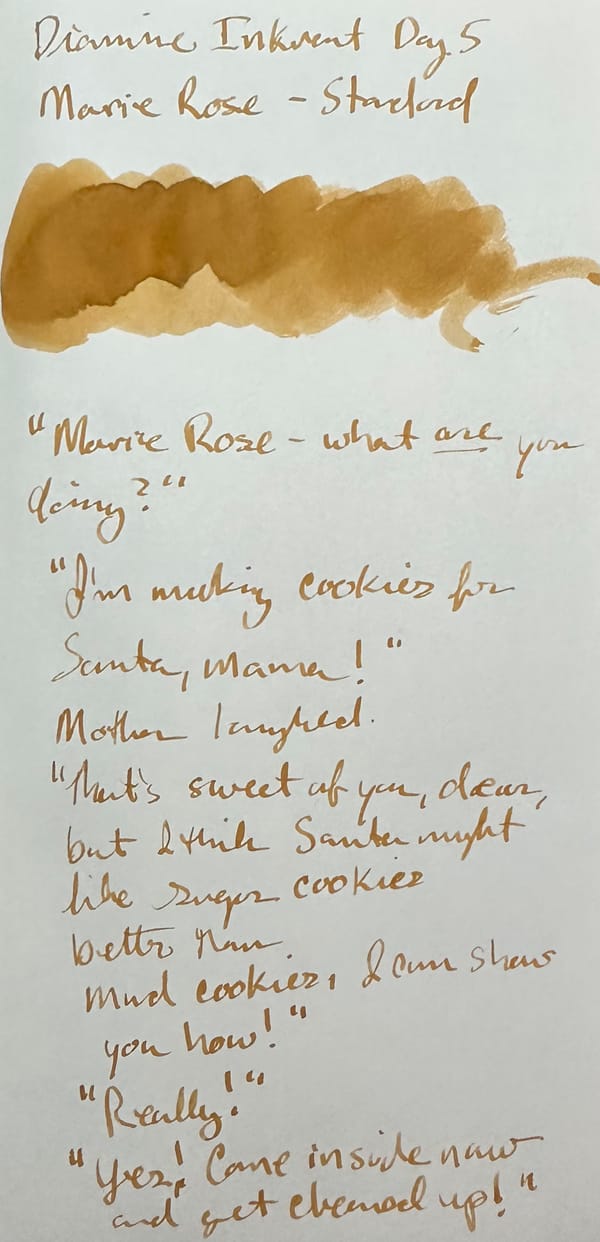 Diamine Inkvent Day 5
Marie Rose - Standard
"Marie Rose - what are you
doing?"
"I'm making cookies for
Santa, Mama!"
Mother laughed.
"That's sweet of you, dear,
but I think Santa might
like sugar cookies
better than
mud cookies, I can show
you how!"
"Really!"
"Yes! Come inside now
and get cleaned up!"